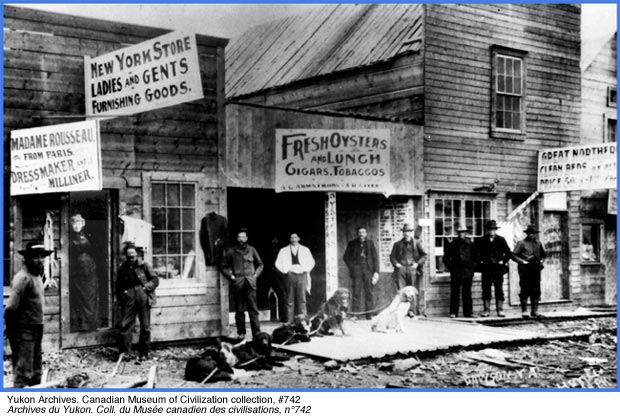 NEW YORK STORE
LADIES AND GENTS
FURNISHING GOODS.
MADAME ROUSSEAU.
FROM PARIS.
DRESSMAKER AND
MILLINER.
FRESH OYSTERS
AND LUNCH
CIGARS, TOBACCOS
GREAT NORTHER
CLEAN BEDS
PRICE 50
DAWSON Y.T.
Yukon Archives. Canadian Museum of Civilization collection, #742
Archives du Yukon. Coll. du Musée canadien des civilisations, n°742